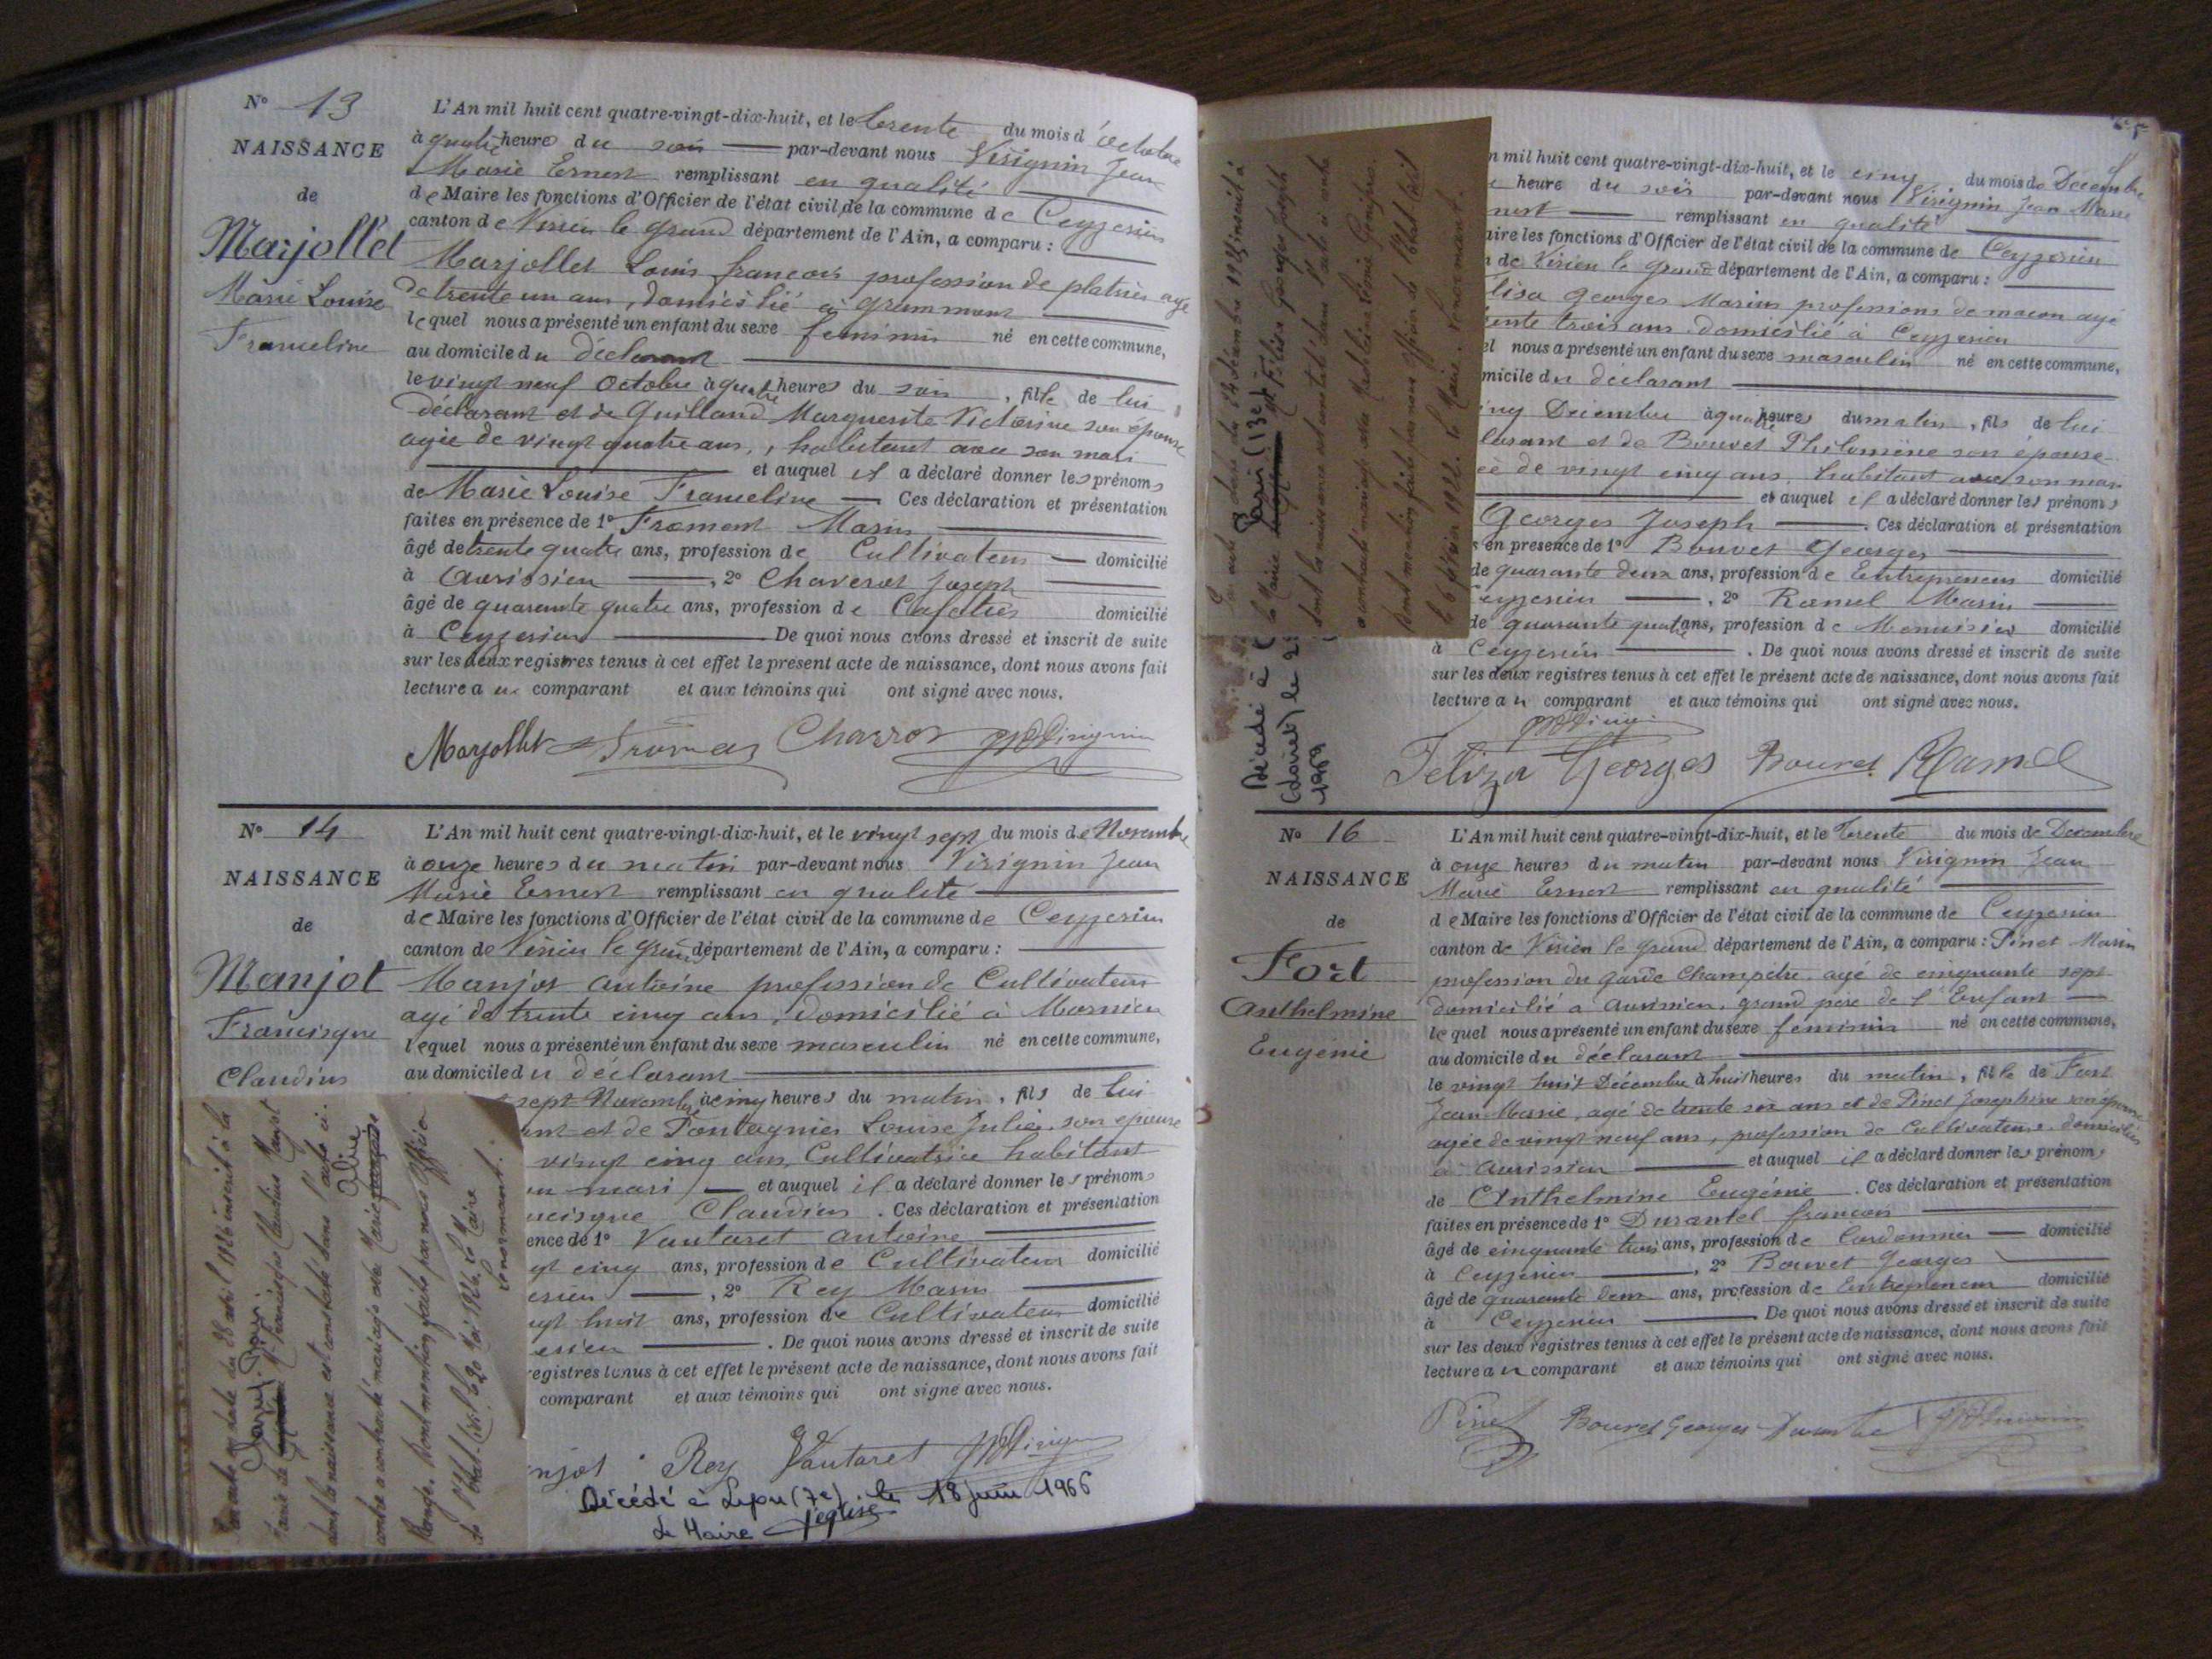 N° 13
NAISSANCE
de
Marjollet
Marie Louise
Franceline
L'An mil huit cent quatre-vingt-dix-huit, et le trente du mois d'Octobre
à quatre heures du soir par-devant nous Virignin Jean
Marie Ernest remplissant en qualité
de Maire les fonctions d'Officier de l'état civil de la commune de Ceyzerieu
canton de Virieu le grand département de l'Ain, a comparu :
Marjollet Louis françois profession de platrier agé
de trente un ans, domicilié à grammont
lequel nous a présenté un enfant du sexe feminin né en cette commune,
au domicile du déclarant
le vingt neuf Octobre à quatre heures du soir, fille de lui
déclarant et de Guilland Marguerite Victorine son épouse
agée de vingt quatre ans, habitant avec son mari
et auquel il a déclaré donner les prénoms
de Marie Louise Franceline Ces déclaration et présentation
faites en présence de 1° Froment Marin
âgé de trente quatre ans, profession de Cultivateur domicilié
à Avrissieu, 2° Joseph
âgé de quarante quatre ans, profession de Cafetier domicilié
à Ceyzerieu De quoi nous avons dressé et inscrit de suite
sur les deux registres tenus à cet effet le présent acte de naissance, dont nous avons fait
lecture au comparant et aux témoins qui ont signé avec nous.
Marjollet
N° 14
NAISSANCE
de
Manjot
Francisque
Claudius
L'An mil huit cent quatre-vingt-dix-huit, et le vingt sept du mois de Novembre
à onze heures du matin par-devant nous Virignin Jean
Marie Ernest remplissant en qualité
de Maire les fonctions d'Officier de l'état civil de la commune de Ceyzerieu
canton de Virieu le grand département de l'Ain, a comparu :
Manjot Antoine profession de Cultivateur
agé de trente cinq ans, domicilié à Mornieu
lequel nous a présenté un enfant du sexe masculin né en cette commune,
au domicile du déclarant
sept Novembre à cinq heures du matin, fils de lui
ant et de Pontagnier Louise Julie son épouse
vingt cinq ans, Cultivatrice habitant
mari et auquel il a déclaré donner les prénoms
ncisque Claudius. Ces déclaration et présentation
ence de 1° Vautaret Antoine
gt cinq ans, profession de Cultivateur domicilié
erieu, 2° Rey Marin
gt huit ans, profession de Cultivateur domicilié
erieu. De quoi nous avons dressé et inscrit de suite
registres tenus à cet effet le présent acte de naissance, dont nous avons fait
comparant et aux témoins qui ont signé avec nous.
njot Rey Vautaret
Décédé à Lyon (7e) le 18 juin 1966
Le Maire
Par acte en date du 28 avril 1926 inscrit à la
Mairie de Francisque Claudius Manjot
dont la naissance est constatée dans l'acte ci
contre a contracté mariage avec Marie
Dont mention faite par nous Officier
de l'état-civil le 20 Mai 1926. Le Maire
Venormant.
n mil huit cent quatre-vingt-dix-huit, et le cinq du mois de Décembre
heure du soir par-devant nous Virignin Jean Marie
nest remplissant en qualité
aire les fonctions d'Officier de l'état civil de la commune de Ceyzerieu
de Virieu le grand département de l'Ain, a comparu :
lisa Georges Marius profession de maçon agé
ente trois ans domicilié à Ceyzerieu
el nous a présenté un enfant du sexe masculin né en cette commune,
micile du déclarant
inq Décembre à quatre heures du matin, fils de lui
larant et de Bouvet Philomène son épouse
ée de vingt cinq ans, habitant avec son mari
et auquel il a déclaré donner les prénoms
Georges Joseph. Ces déclaration et présentation
s en présence de 1° Bouvet Georges
de quarante deux ans, profession de Entrepreneur domicilié
eyzerieu, 2° Ramel Marin
de quarante quatre ans, profession de Menuisier domicilié
à Ceyzerieu. De quoi nous avons dressé et inscrit de suite
sur les deux registres tenus à cet effet le présent acte de naissance, dont nous avons fait
lecture au comparant et aux témoins qui ont signé avec nous.
Feliza Georges Bouvet Ramel
Par acte en date du 14 décembre 1922 inscrit à
la Mairie Paris (13e) Georges Joseph
dont la naissance est constatée dans l'acte ci contre
a contracté mariage avec
Dont mention faite par nous Officier de l'état civil
Le Maire. Venormant.
Décédé à
1969
N° 16
NAISSANCE
de
Fort
Anthelmine
Eugénie
L'An mil huit cent quatre-vingt-dix-huit, et le trente du mois de Décembre
à onze heures du matin par-devant nous Virignin Jean
Marie Ernest remplissant en qualité
de Maire les fonctions d'Officier de l'état civil de la commune de Ceyzerieu
canton de Virieu le grand département de l'Ain, a comparu : Pinet Marin
profession du garde Champêtre agé de cinquante sept
domicilié à Avrissieu, grand père de l'Enfant
lequel nous a présenté un enfant du sexe feminin né en cette commune,
au domicile du déclarant
le vingt huit Décembre à huit heures du matin, fille de Fort
Jean Marie, agé de trente six ans et de Pinet Josephine son épouse
agée de vingt neuf ans, profession de Cultivateurs, domiciliés
à Avrissieu et auquel il a déclaré donner les prénoms
de Anthelmine Eugénie. Ces déclaration et présentation
faites en présence de 1° Durantel françois
âgé de cinquante trois ans, profession de Cordonnier domicilié
à Ceyzerieu, 2° Bouvet Georges
âgé de quarante deux ans, profession de Entrepreneur domicilié
à Ceyzerieu De quoi nous avons dressé et inscrit de suite
sur les deux registres tenus à cet effet le présent acte de naissance, dont nous avons fait
lecture au comparant et aux témoins qui ont signé avec nous.
Pinet Bouvet Georges